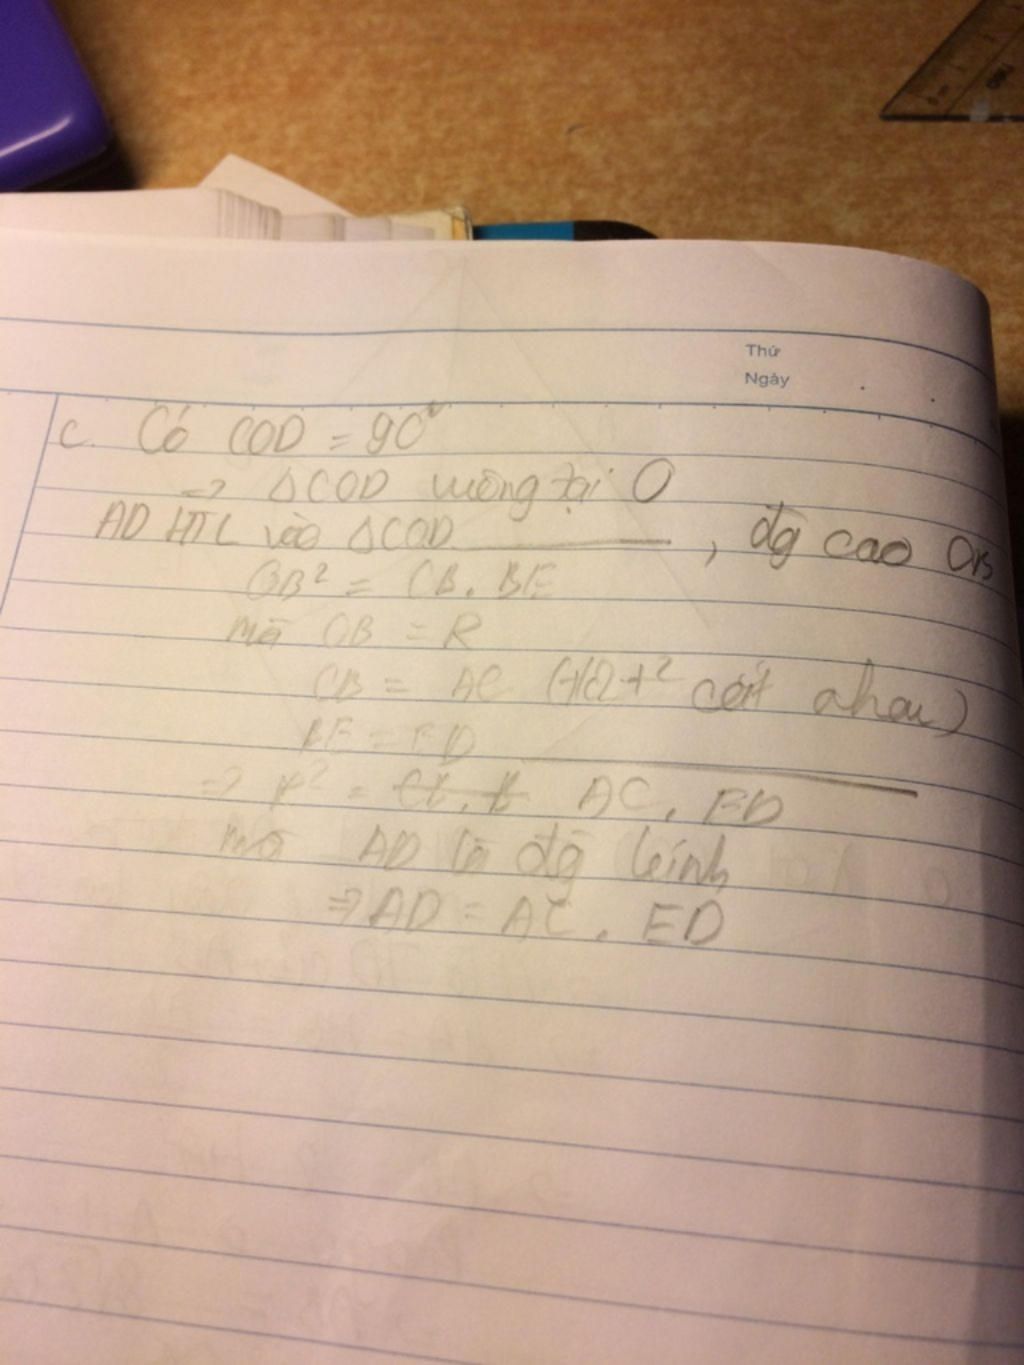 Thứ
Ngày
c. Có COD = 90°
=> ΔCOD vuông tại O
AD HTL vào ΔCOD ———, đg cao OB
OB² = CB. BE
mà OB = R
CB = AC (t/c 2 t² cắt nhau)
BE = ED ———
=> R² = AC. ED
mà AD là đg kính
=> AD = AC. ED